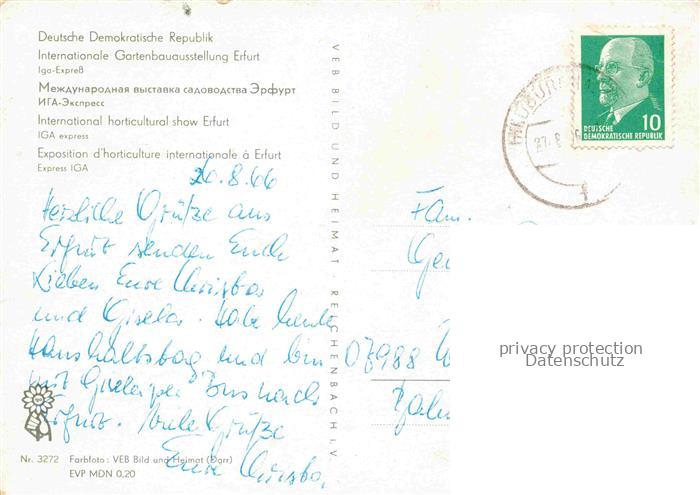 Deutsche Demokratische Republik
Internationale Gartenbauausstellung Erfurt
Iga-Expreß
Международная выставка садоводства Эрфурт
ИГА-Экспресс
International horticultural show Erfurt
IGA express
Exposition d'horticulture internationale à Erfurt
Express IGA
20.8.66
Herzliche Grüße aus
Erfurt senden Euch
Lieben Eure Christa
und Gisela. Habe heute
Haushaltstag und bin
mit Gisela per Bus nach
Erfurt. Viele Grüße
Eure Christa
Nr. 3272 Farbfoto: VEB Bild und Heimat (Darr)
EVP MDN 0,20
VEB BILD UND HEIMAT · REICHENBACH i. V.
DEUTSCHE
DEMOKRATISCHE REPUBLIK
10
27.8
Fam.
privacy protection
Datenschutz